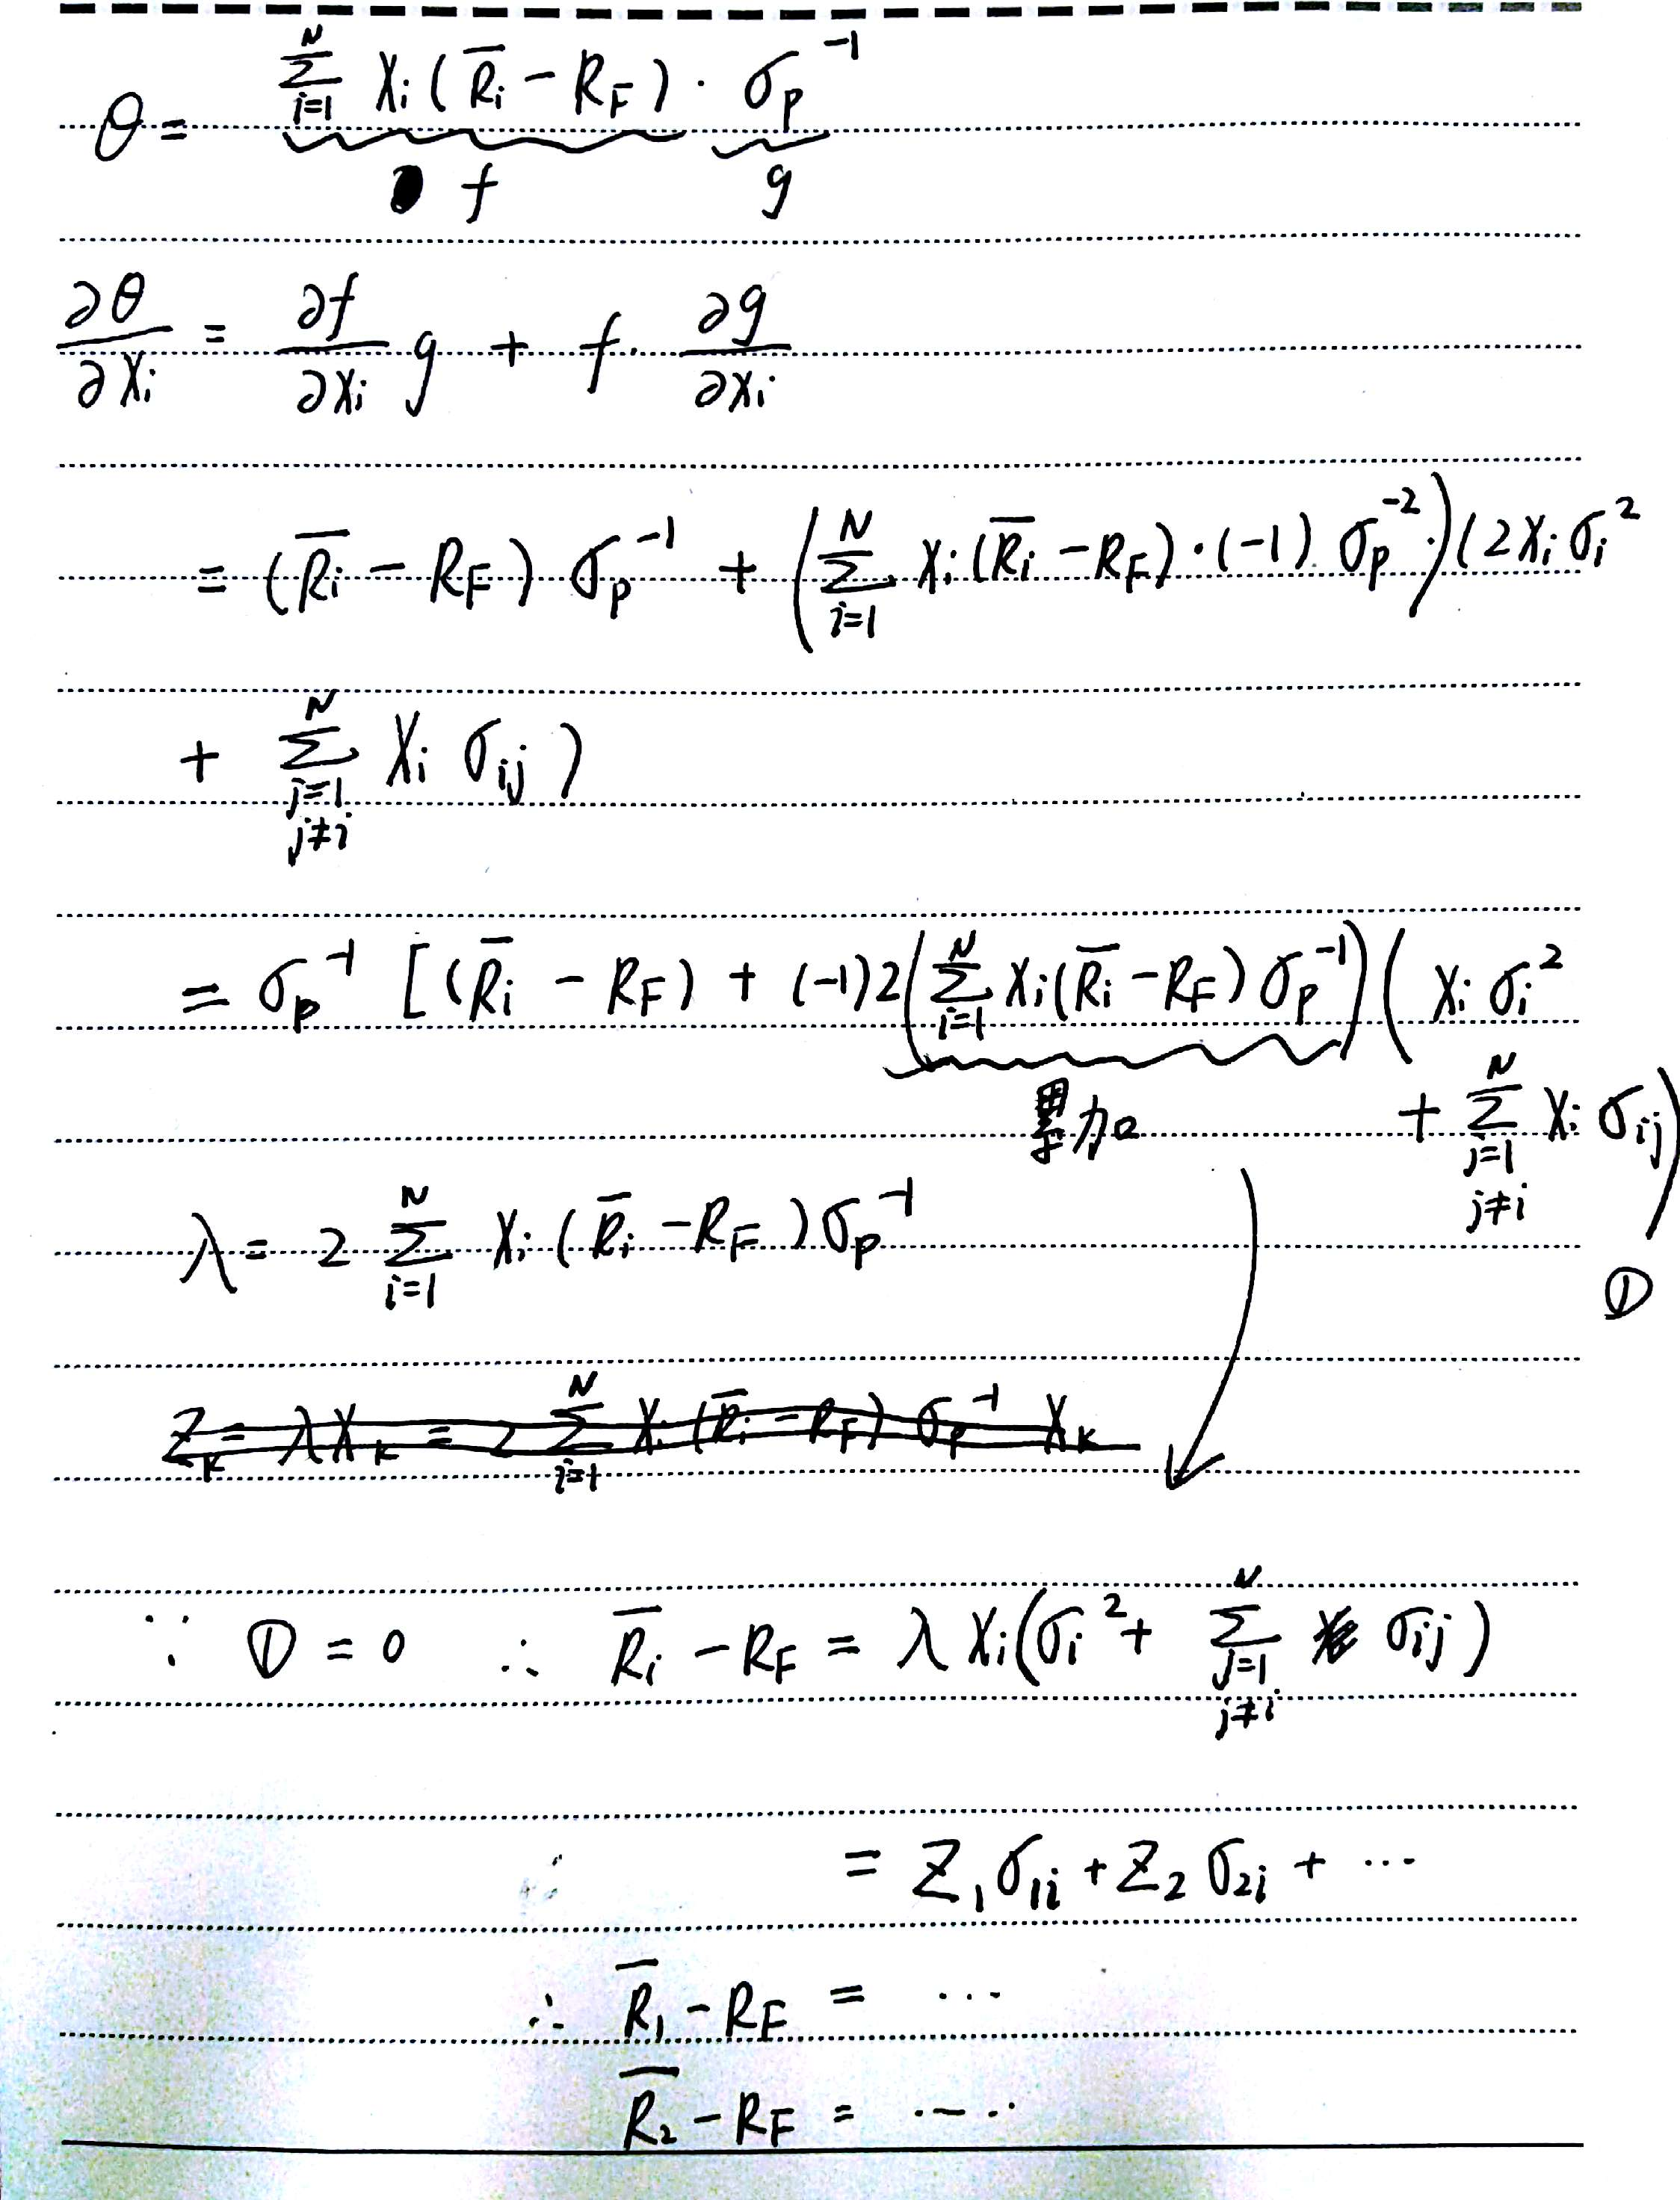 θ = \sum_{i=1}^{N} X_i ( \bar{R_i} - R_F ) · σ_p^{-1}
f g
\frac{∂θ}{∂X_i} = \frac{∂f}{∂X_i} g + f · \frac{∂g}{∂X_i}
= ( \bar{R_i} - R_F ) σ_p^{-1} + ( \sum_{i=1}^{N} X_i ( \bar{R_i} - R_F ) · (-1) σ_p^{-2} · ) ( 2 X_i σ_i^2
+ \sum_{j=1, j≠i}^{N} X_i σ_{ij} )
= σ_p^{-1} [ ( \bar{R_i} - R_F ) + (-1) 2 ( \sum_{i=1}^{N} X_i ( \bar{R_i} - R_F ) σ_p^{-1} ) ( X_i σ_i^2
累加 + \sum_{j=1, j≠i}^{N} X_i σ_{ij} )
λ = 2 \sum_{i=1}^{N} X_i ( \bar{R_i} - R_F ) σ_p^{-1}
①
Z_K = λ X_K = 2 \sum_{i=1}^{N} X_i ( \bar{R_i} - R_F ) σ_p^{-1} X_K
∵ ① = 0 ∴ \bar{R_i} - R_F = λ X_i ( σ_i^2 + \sum_{j=1, j≠i}^{N} σ_{ij} )
= Z_1 σ_{1i} + Z_2 σ_{2i} + ···
∴ \bar{R_1} - R_F = ···
\bar{R_2} - R_F = ·····